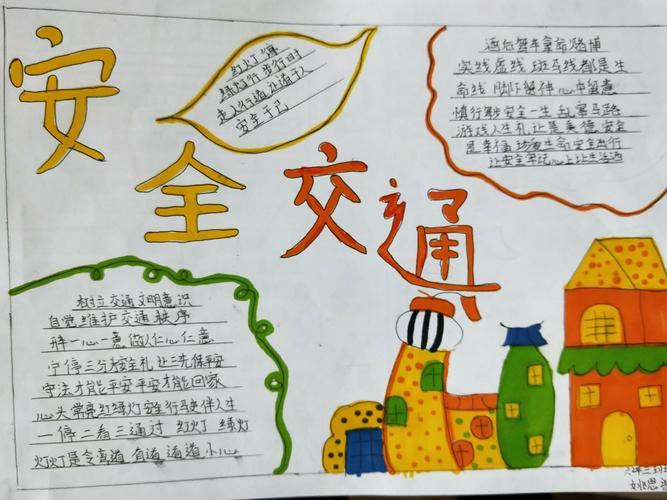 安全交通
红灯停
绿灯行 步行时
走人行道 让道于人
安全于己
酒后驾车拿命赌博
实线虚线 斑马线都是生
命线 脚下留神 心中留意
慎行驶安全一生 乱穿马路
游戏人生礼让是美德 安全
是幸福 珍爱生命安全出行
让安全牢记心上让生活洒
树立交通文明意识
自觉维护交通秩序
存一心一意 做仁心仁意
宁停三分为安全礼让三先保平安
守法才能平安平安才能回家
心头常亮红绿灯安全行驶伴人生
一停二看三通过 红灯 绿灯
灯灯是令 直道 弯道 道道小心